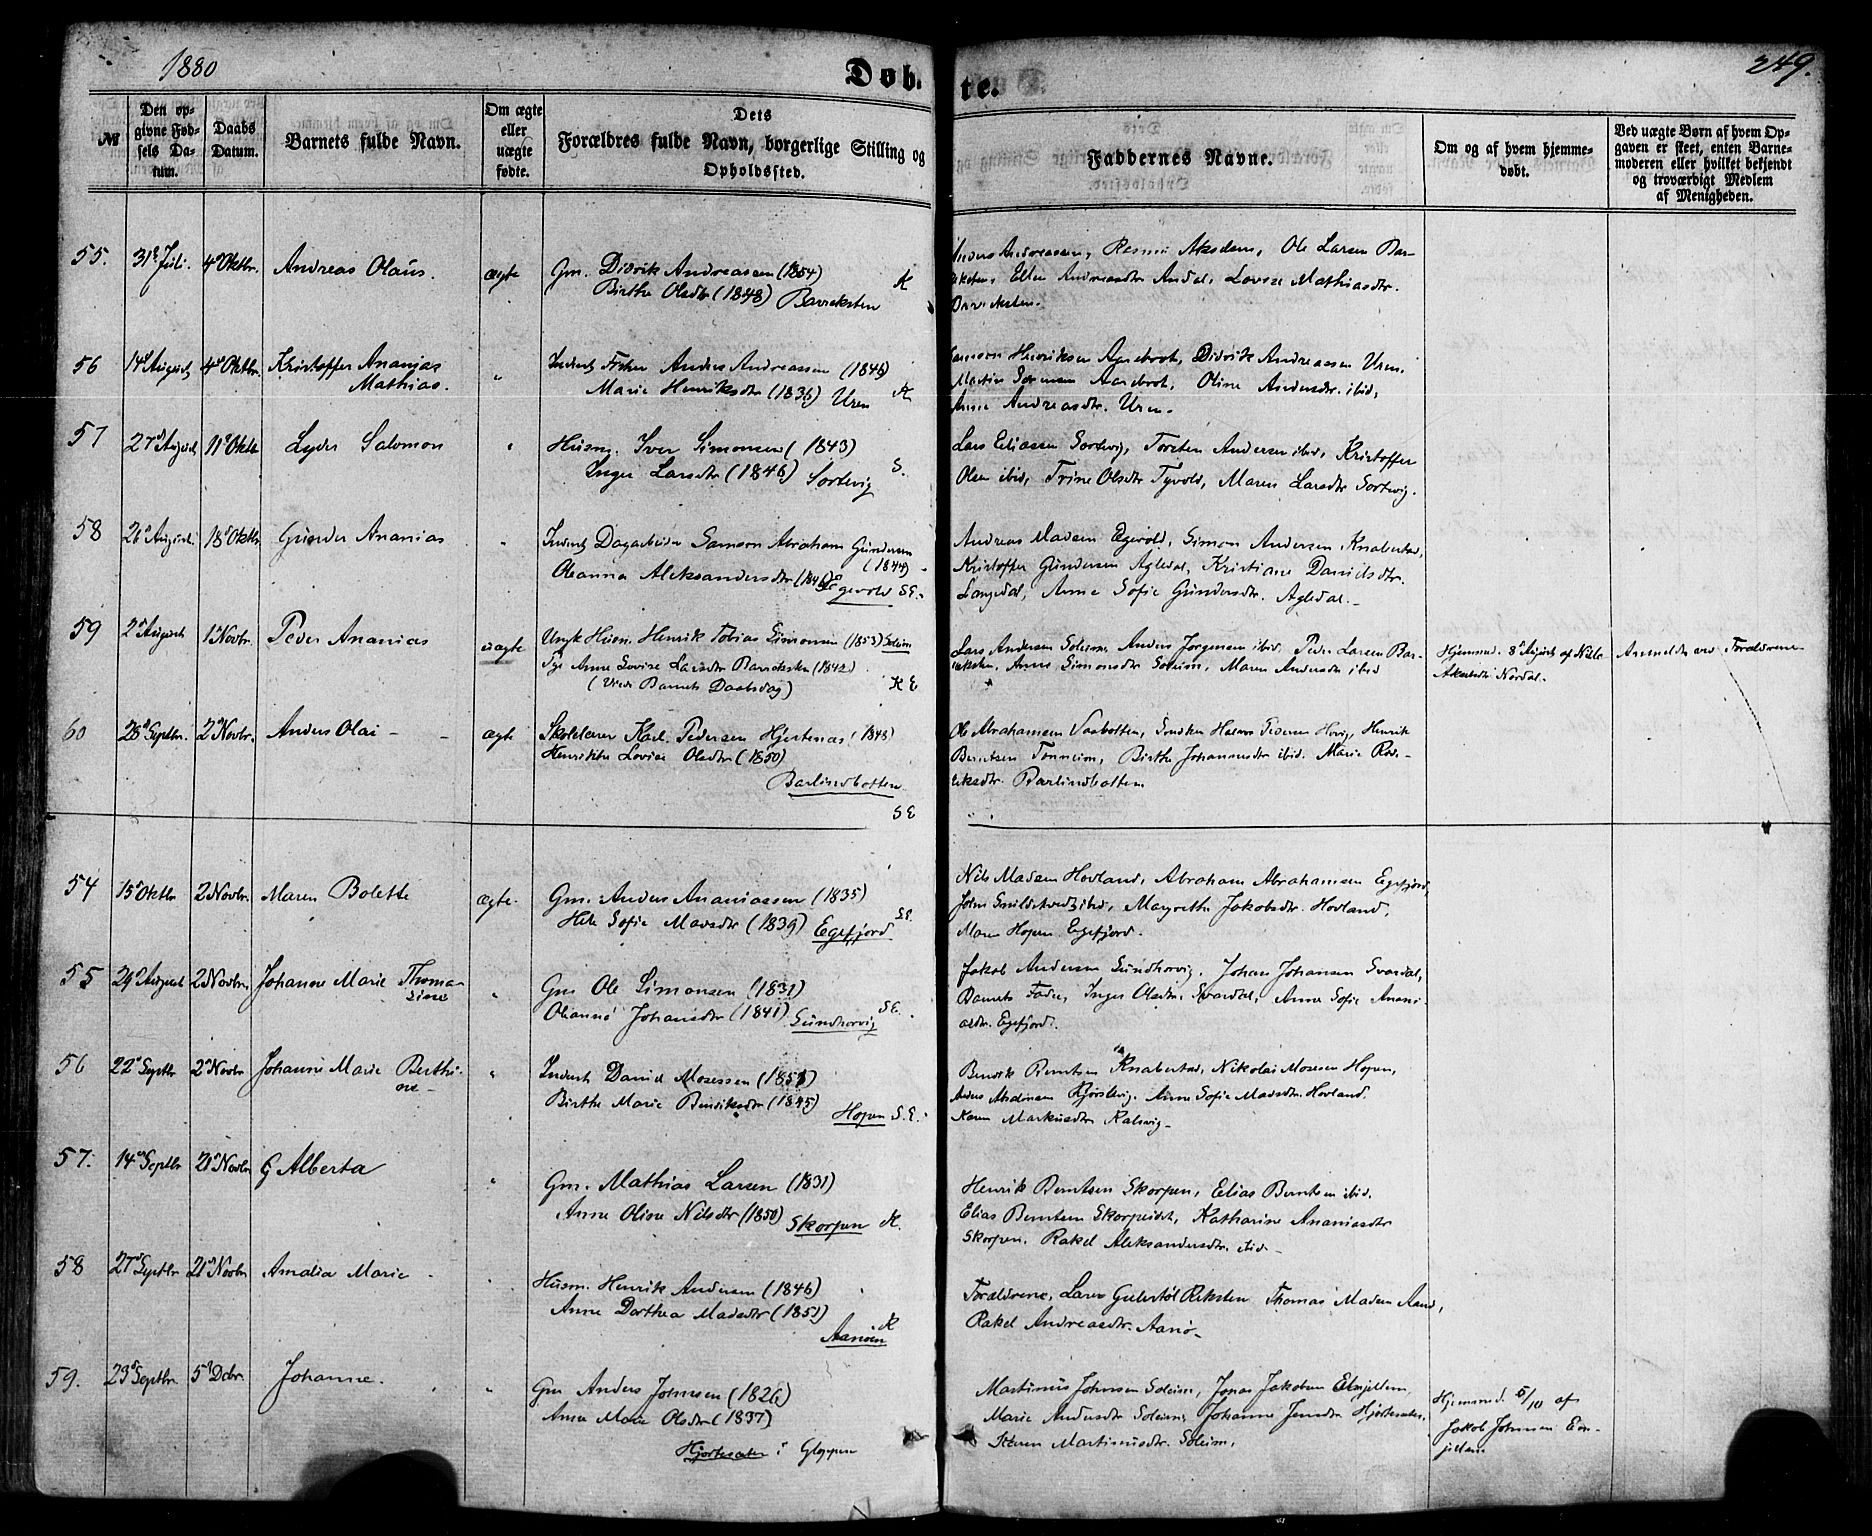 1880
249.
Døb-
te.
№
Den op-
givne Fød-
sels Da-
tum.
Daabs
Datum.
Barnets fulde Navn.
Om ægte
eller
uægte
fødte.
Dets
Forældres fulde Navn, borgerlige Stilling og
Opholdssted.
Faddernes Navne.
Om og af hvem hjemme-
døbt.
Ved uægte Børn af hvem Op-
gaven er skeet, enten Barne-
moderen eller hvilket bekjendt
og troværdigt Medlem
af Menigheden.
55. 31te Juli. 4de Oktbr. Andreas Olaus. ægte
Gm. Didrik Andreassen (1854)
Birthe Olsdtr (1848) Barreksten K
Anders Andreassen, Rasmus Aksdem, Ole Larsen Bar-
reksten, Ellen Andreasdtr Ardal, Lovise Mathiasdtr.
Barreksten.
56 14de August 4de Oktbr. Kristoffer Ananias
Mathias. "
Inderst Fisker Anders Andreassen (1846)
Marie Henriksdtr (1836) Uren K.
Samson Henriksen Aarebrot, Didrik Andreassen Uren,
Martin Sørensen Aarebrot, Oline Andersdtr. ibid,
Anne Andreasdtr. Uren.
57 27de August 11te Oktbr Lyder Salomon "
Husm. Iver Simonsen (1843)
Inger Larsdtr (1846) Sortevig S.
Lars Eliassen Sortevig, Torsten Andersen ibid, Kristoffer
Olsen ibid, Trine Olsdtr Tyvold, Maren Larsdtr Sortevig.
58 26de August. 18de Oktbr Gunder Ananias "
Inderst Dagarbeider Samson Abraham Gundersen
(1844)
Oleanna Aleksandersdtr (1846) Egevold S.E.
Andreas Madsen Egevold, Simon Andersen Knabestad,
Kristoffer Gundersen Agledal, Kristiane Danielsdtr.
Langedal, Anne Sofie Gundersdtr. Agledal.
59 2den August 1ste Novbr. Peder Ananias uægte
Ungk Husm. Henrik Tobias Simonsen (1853) Soleim
Pge Anne Lovise Larsdtr Barreksten (1842)
(Viede Barnets Daabsdag) K E
Lars Andersen Soleim, Anders Jørgensen ibid, Peder Larsen Bar-
reksten, Anne Simonsdtr Soleim, Maren Andersdtr ibid
Hjemmed. 8de August af Nils
Aksel Nordal.
Anmeldt ved Forældrene
60 28de Septbr. 2den Novbr. Anders Olai ægte
Skolelærer Karl Pedersen Hjertenæs (1848)
Henrikke Lovise Olsdtr (1850)
Barlindbotten
S E
Ole Abrahamsen Barlindbotten, Halvor Pedersen Hovig, Henrik
Berntsen Tonheim, Birthe Johannesdtr ibid. Marie Rod-
riksdtr. Barlindbotten.
54 15de Oktbr 2den Novbr. Maren Bolette ægte
Gm. Anders Ananiassen (1835)
Helle Sofie Madsdtr (1839) Egefjord S.E.
Nils Madsen Hovland, Abraham Abrahamsen Egefjord
ibid, Margrethe Jakobsdtr. Hovland,
Maren Hopen Egefjord.
55 29de August 2den Novbr. Johanne Marie Thoma-
sine "
Gm Ole Simonsen (1831)
Oleanne Johansdtr (1841) Sundhorvig S.E.
Jakob Andersen Sundhorvig. Johan Johansen Svardal,
Barnets Fader, Inger Olsdtr. Svardal, Anne Sofie Anani-
asdtr. Egefjord.
56 22de Septbr 2den Novbr Johanne Marie Berthi-
ne "
Inderst David Mosessen (1851)
Birthe Marie Bendiksdtr (1845) Hopen S.E.
Bendik Berntsen Knabestad, Nikolai Mosesen Hopen,
Anders Andersen Bjørslevig. Anne Sofie Madsdtr. Hovland.
Karen Markusdtr Kalsvig
57. 14de Septbr 21de Novbr G Alberta "
Gm. Mathias Larsen (1831)
Anne Oline Nilsdtr (1850) Skorpen K.
Henrik Berntsen Skorpen, Elias Berntsen ibid,
Elias Berntsen Skorpeidet, Katharine Ananiasdtr
Skorpen. Rakel Aleksandersdtr. ibid
58 27de Septbr 21de Novbr Amalia Marie "
Husm. Henrik Andersen (1846)
Anne Dorthea Madsdtr (1852)
Aanøen K
Forældrene, Lærer Gulestøl Reksten Thomas Madsen Aanø,
Rakel Andreasdtr. Aanø
59. 23de Septbr. 5te Debr. Johanne. "
Gm Anders Johnsen (1826)
Anne Marie Olsdtr (1837)
Hjortesæter i Gloppen
Martinus Johnsen Soleim, Jonas Jakobsen Endjellem,
Marie Andersdtr Soleim, Johanne Jensdtr Hjortesæter,
Karen Martinusdtr. Soleim.
Hjemmed. 5/10 af
Jakob Johnsen En-
jellem